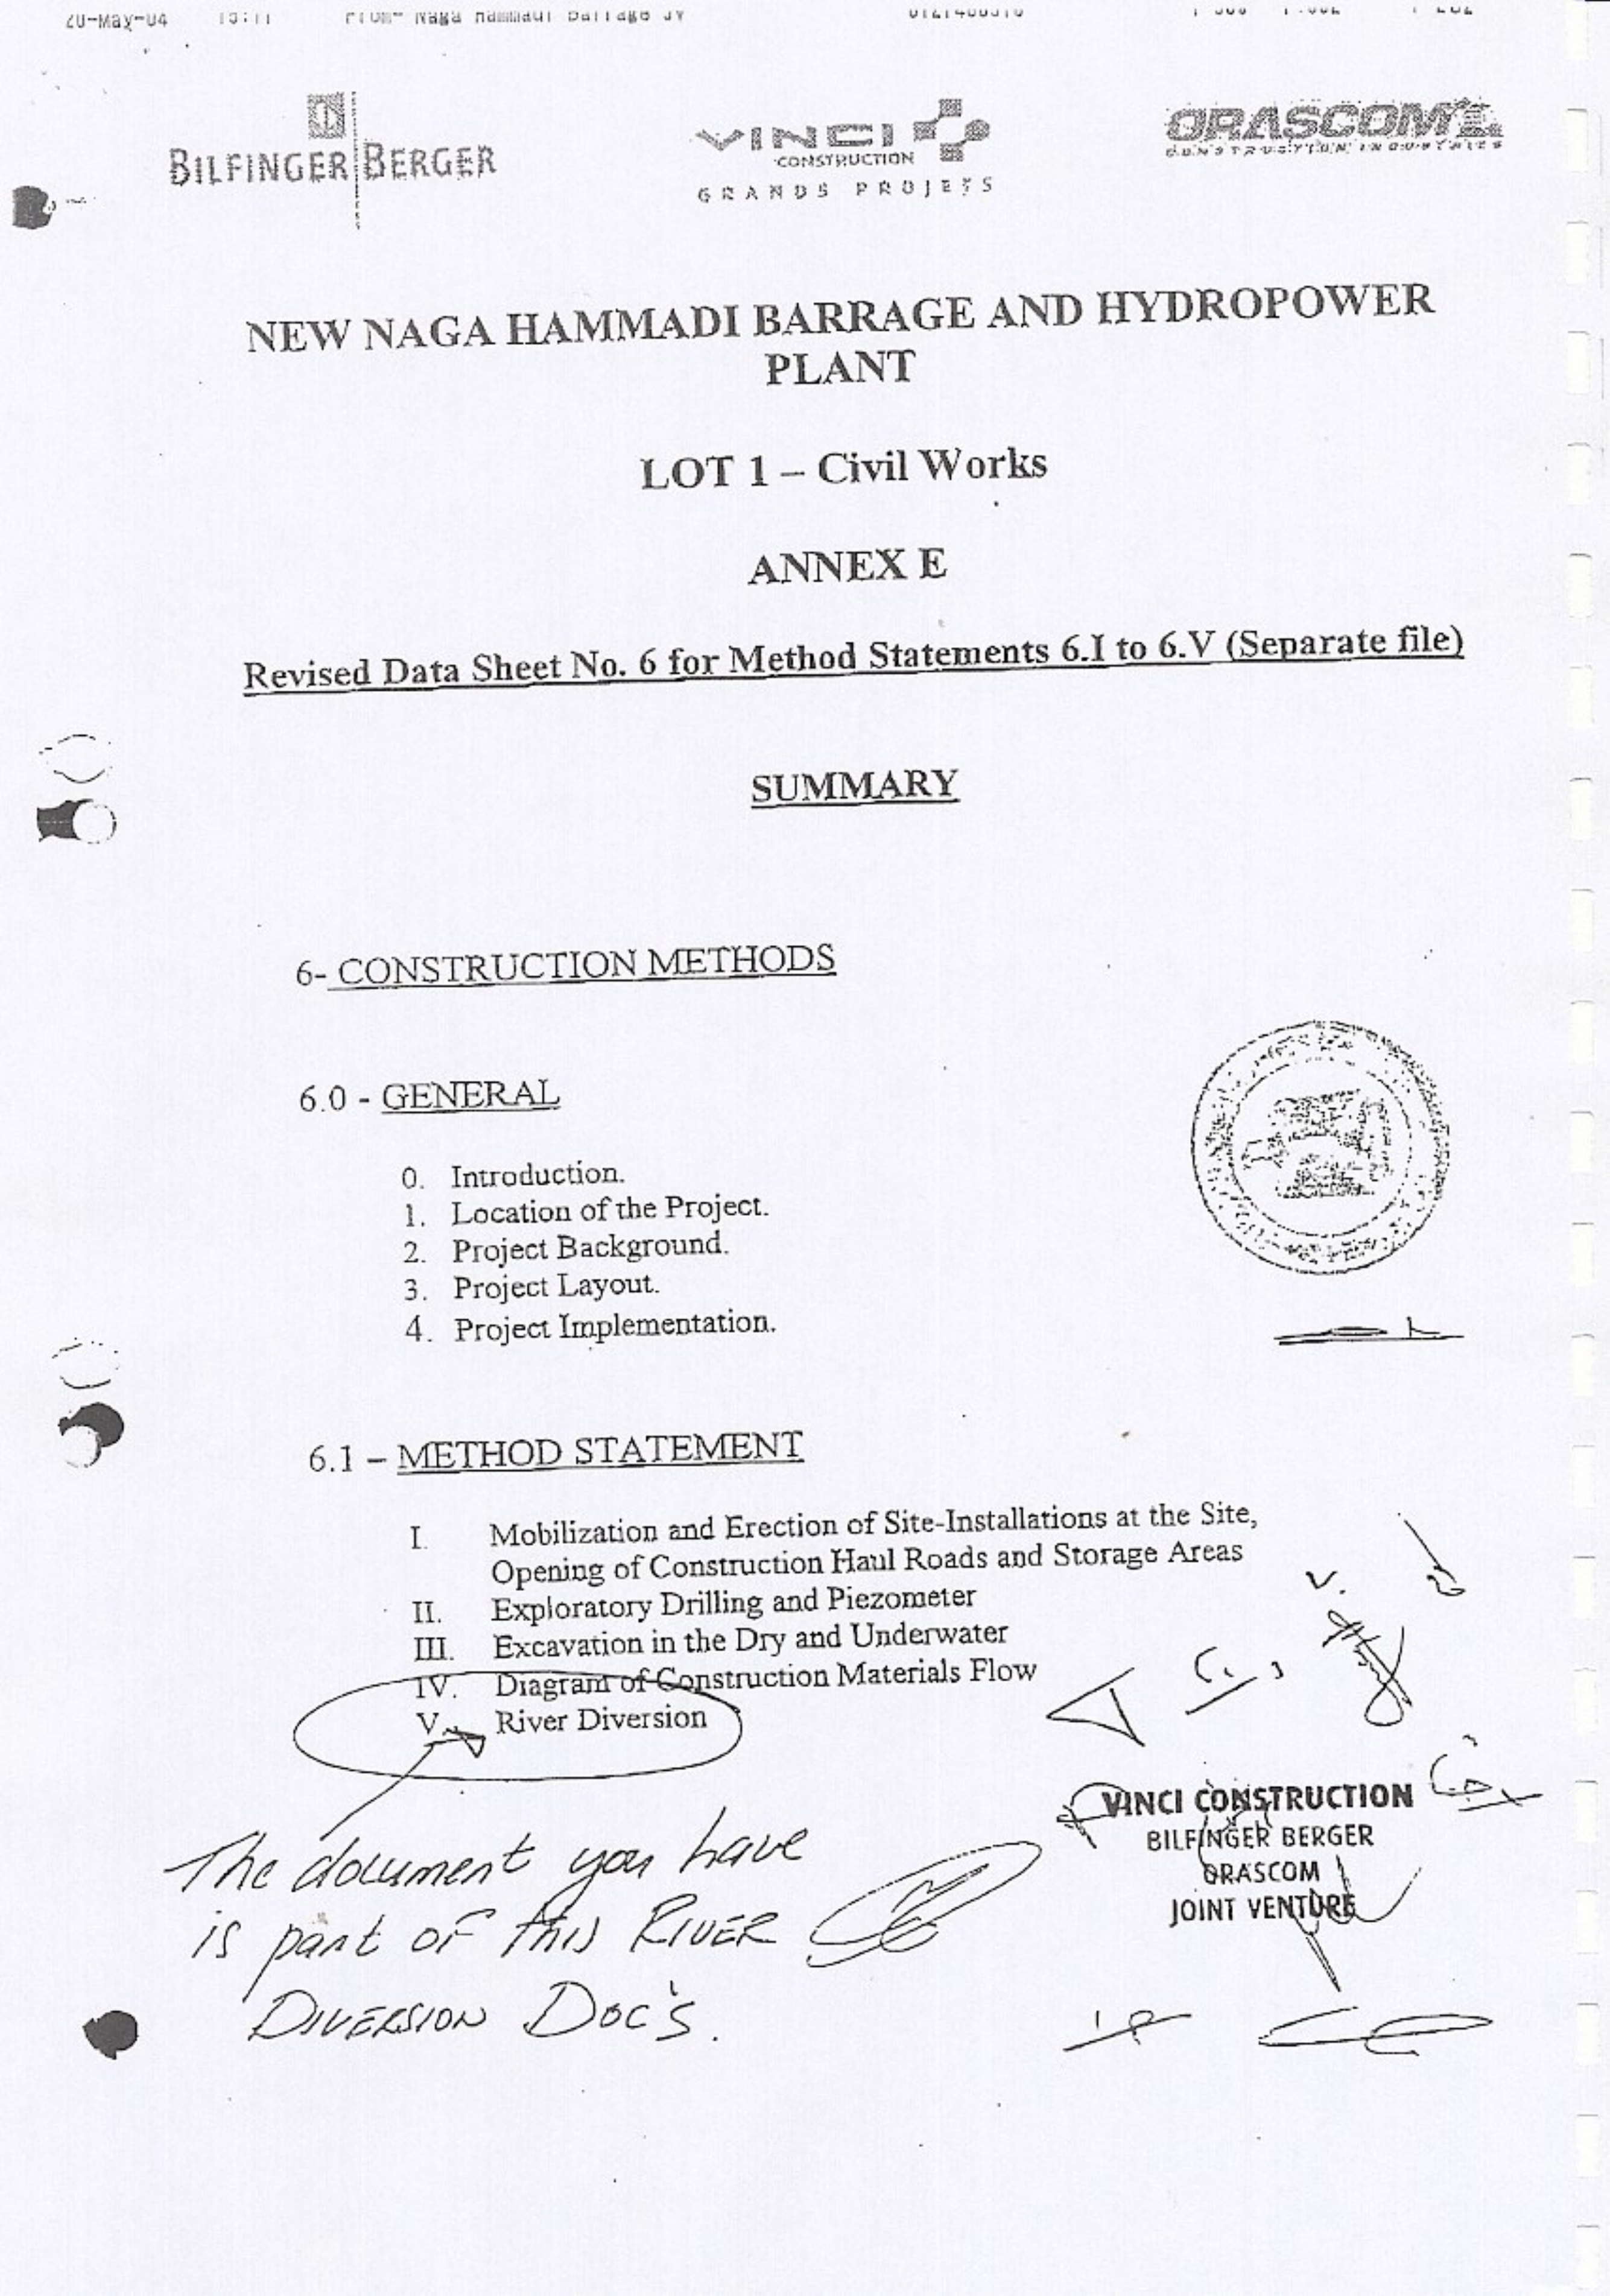 20-May-04 From- Naga Hammadi Barrage JV
BILFINGER BERGER
VINCI
CONSTRUCTION
GRANDS PROJETS
ORASCOM
CONSTRUCTION INDUSTRIES
NEW NAGA HAMMADI BARRAGE AND HYDROPOWER
PLANT
LOT 1 – Civil Works
ANNEX E
Revised Data Sheet No. 6 for Method Statements 6.I to 6.V (Separate file)
SUMMARY
6- CONSTRUCTION METHODS
6.0 - GENERAL
0. Introduction.
1. Location of the Project.
2. Project Background.
3. Project Layout.
4. Project Implementation.
6.1 – METHOD STATEMENT
I. Mobilization and Erection of Site-Installations at the Site,
Opening of Construction Haul Roads and Storage Areas
II. Exploratory Drilling and Piezometer
III. Excavation in the Dry and Underwater
IV. Diagram of Construction Materials Flow
V. River Diversion
The document you have
is part of this RIVER
DIVERSION DOC'S.
VINCI CONSTRUCTION
BILFINGER BERGER
ORASCOM
JOINT VENTURE